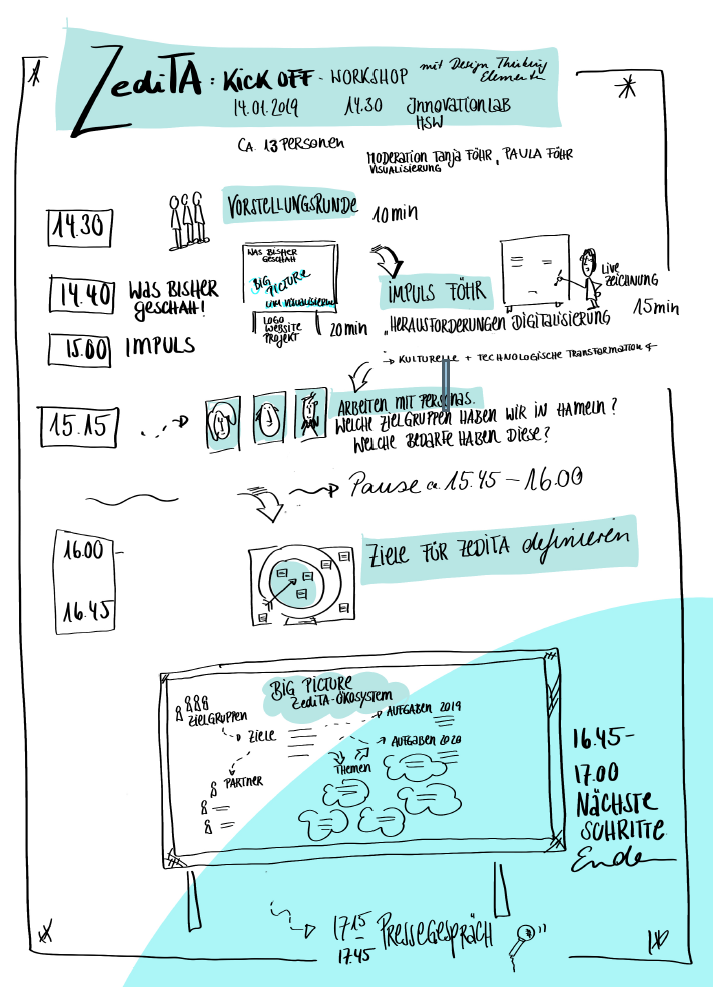 ZediTA: KICK OFF - WORKSHOP mit Design Thinking Elementen
14.01.2019 14.30 InnovationLab
HSW
CA. 13 PERSONEN
MODERATION TANJA FÖHR, PAULA FÖHR
VISUALISIERUNG
VORSTELLUNGSRUNDE
10 min
14.30
WAS BISHER
GESCHAH
BIG
PICTURE
LIVE VISUALISIERUNG
LOGO
WEBSITE
PROJEKT
20 min
14.40
WAS BISHER
GESCHAH!
IMPULS FÖHR
LIVE
ZEICHNUNG
15 min
„HERAUSFORDERUNGEN DIGITALISIERUNG
15.00
IMPULS
→ KULTURELLE + TECHNOLOGISCHE TRANSFORMATION
15.15
ARBEITEN MIT PERSONAS.
WELCHE ZIELGRUPPEN HABEN WIR IN HAMELN?
WELCHE BEDARFE HABEN DIESE?
Pause ca. 15.45 – 16.00
16.00
16.45
ZIELE FÜR ZEDITA definieren
BIG PICTURE
ZediTA-ÖKOSYSTEM
ZIELGRUPPEN
ZIELE
AUFGABEN 2019
AUFGABEN 2020
THEMEN
PARTNER
16.45–
17.00
NÄCHSTE
SCHRITTE
Ende
17.15
–
17.45
PRESSEGESPRÄCH